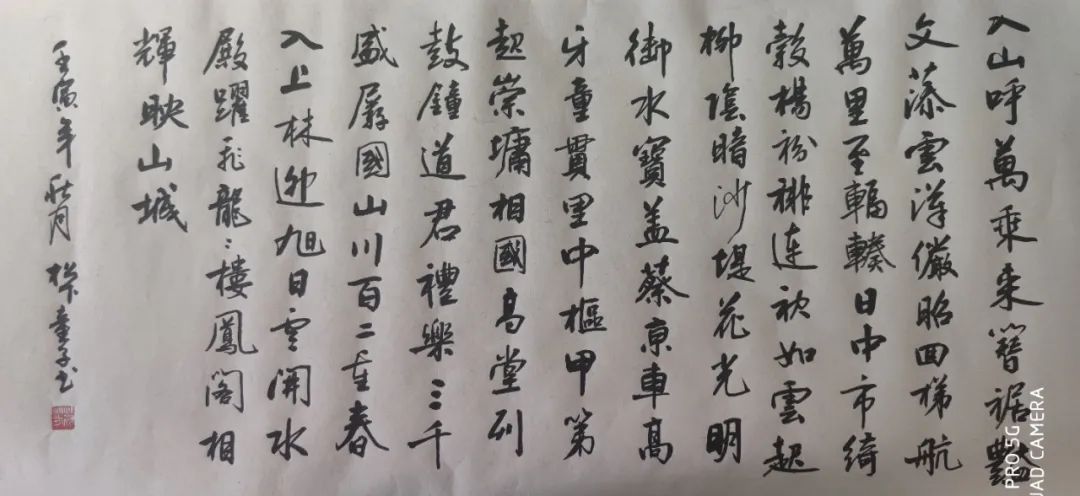 入山呼萬乘来簪裾艷
文藻雲漢儼昭回梯航
萬里至輻輳日中市綺
縠楊连如雲起
柳陰暗沙堤花光明
御水寳盖蔡京車高
牙童貫里中樞甲第
起崇墉相國高堂列
鼓鐘道君禮樂三千
盛孱國山川百二重春
入上林迎旭日雲開水
殿躍飛龍〻樓鳳閣相
輝映山城
壬寅年秋月 童子书
PRO 5G
UAD CAMERA